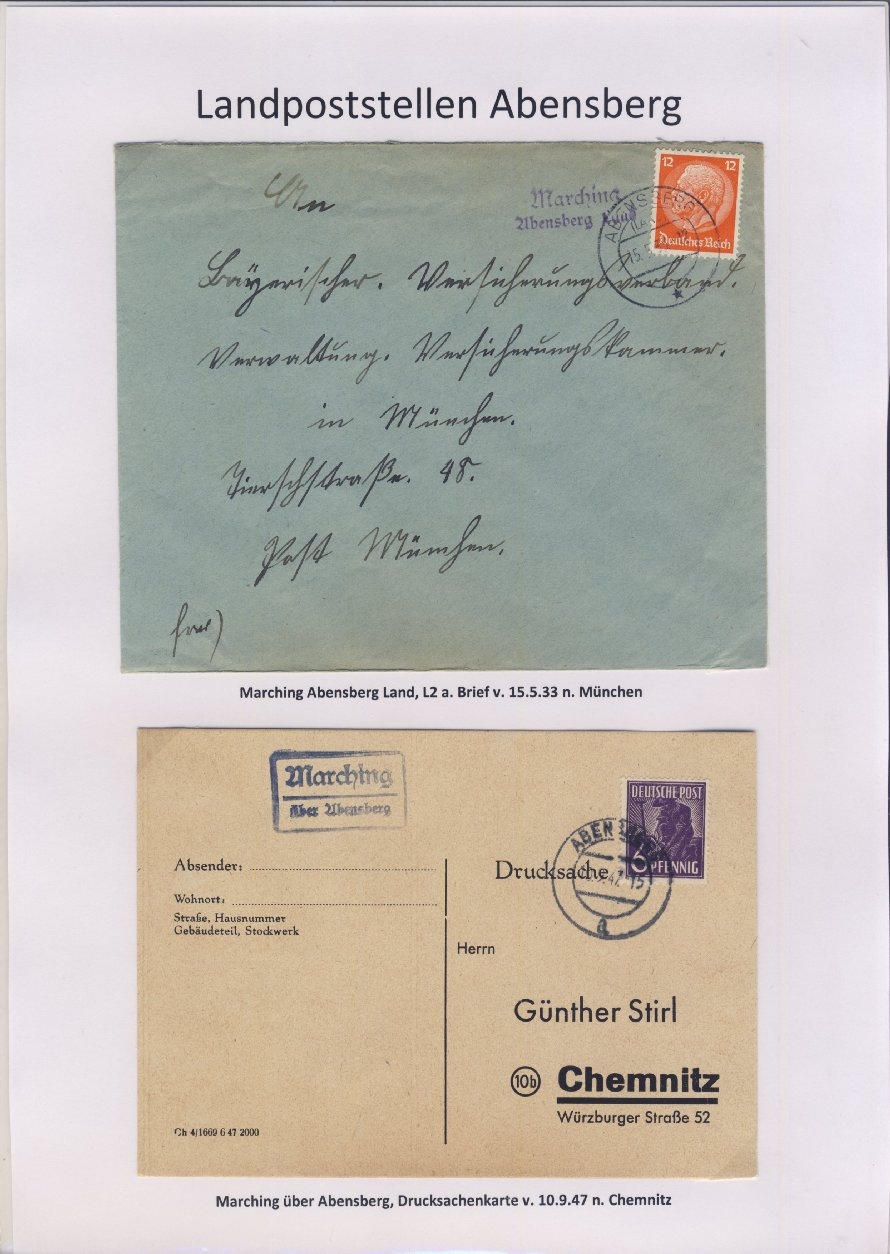 Landpoststellen Abensberg
12 12
Deutsches Reich
Marching
Abensberg Land
ABENSBERG
15.5.
An
Bayerischer. Versicherungsverband.
Verwaltung. Versicherungskammer.
in München.
Tierschstraße. 48.
Post München.
frei)
Marching Abensberg Land, L2 a. Brief v. 15.5.33 n. München
Marching
über Abensberg
DEUTSCHE POST
6 PFENNIG
ABENSBERG
.9.47-15
a
Absender:
Wohnort:
Straße, Hausnummer
Gebäudeteil, Stockwerk
Drucksache
Herrn
Günther Stirl
10b Chemnitz
Würzburger Straße 52
Ch 4/1669 6 47 2000
Marching über Abensberg, Drucksachenkarte v. 10.9.47 n. Chemnitz